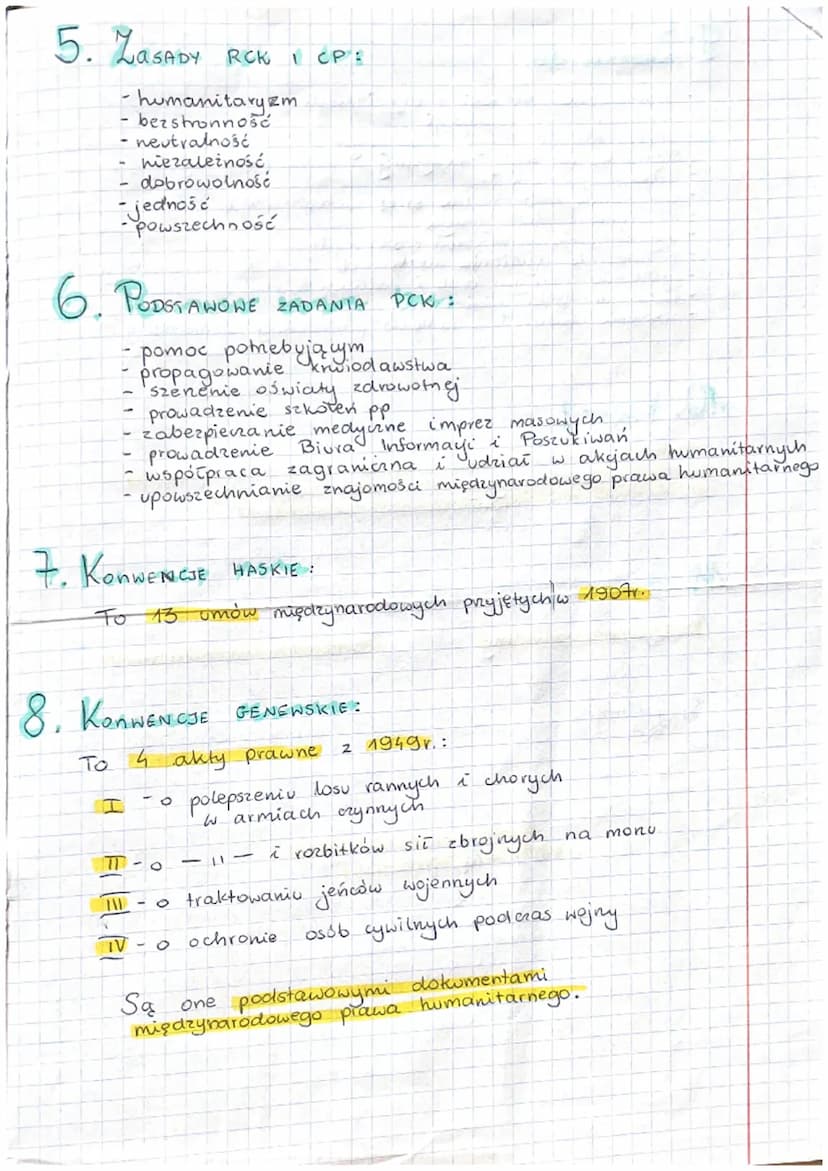 5. ZASADY RCK I CP:
- humanitaryzm
- bezstronność
- neutralność
- niezależność
- dobrowolność
- jedność
- powszechność
6. PODSTAWOWE ZADANIA PCK:
- pomoc potrzebującym
- propagowanie krwiodawstwa
- szerzenie oświaty zdrowotnej
- prowadzenie szkoleń pp
- zabezpieczanie medyczne imprez masowych
- prowadzenie Biura Informacji i Poszukiwań
- współpraca zagraniczna i udział w akcjach humanitarnych
- upowszechnianie znajomości międzynarodowego prawa humanitarnego
7. KONWENCJE HASKIE:
To 13 umów międzynarodowych przyjętych w 1907r.
8. KONWENCJE GENEWSKIE:
To 4 akty prawne z 1949r.:
I - o polepszeniu losu rannych i chorych
w armiach czynnych
II - o — 11 — i rozbitków sił zbrojnych na morzu
III - o traktowaniu jeńców wojennych
IV - o ochronie osób cywilnych podczas wojny
Są one podstawowymi dokumentami
międzynarodowego prawa humanitarnego.